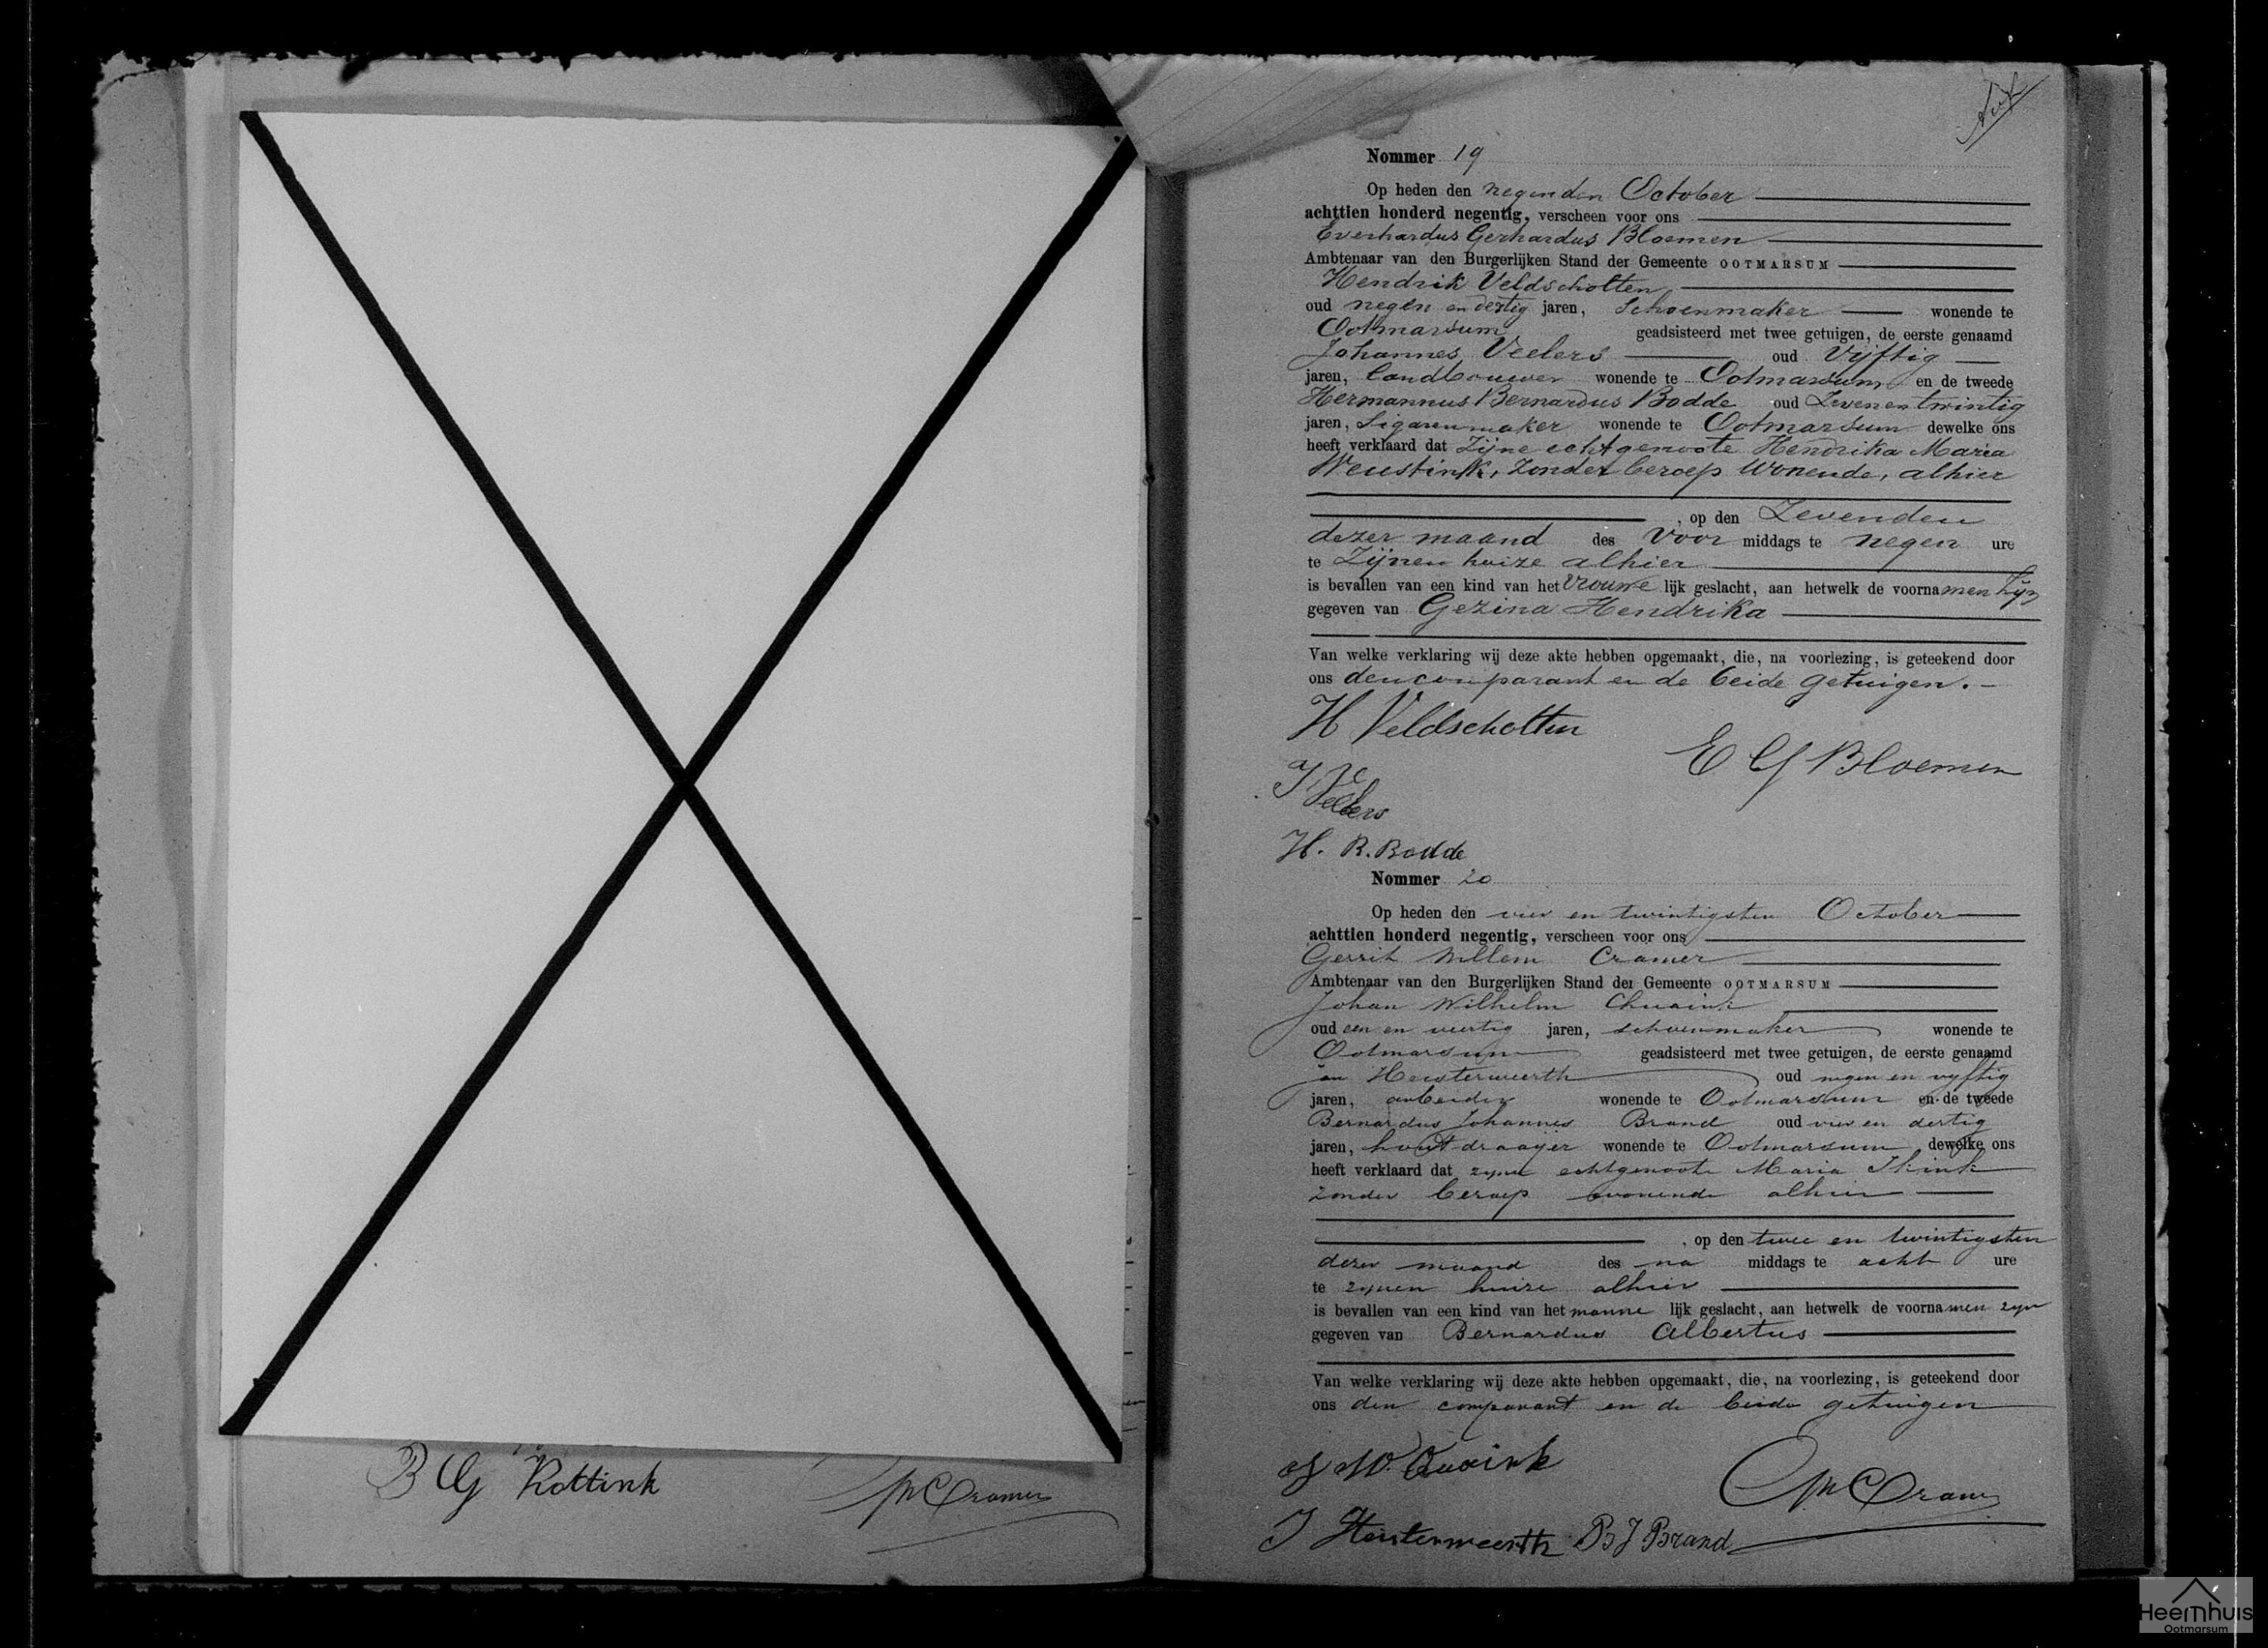 B G Kottink
GWCramer
Nommer 19
Op heden den negenden October
achttien honderd negentig, verscheen voor ons
Everhardus Gerhardus Bloemen
Ambtenaar van den Burgerlijken Stand der Gemeente OOTMARSUM
Hendrik Veldscholten
oud negen en dertig jaren, Schoenmaker wonende te
Ootmarsum geadsisteerd met twee getuigen, de eerste genaamd
Johannes Velers oud vijftig
jaren, landbouwer wonende te Ootmarsum en de tweede
Hermannus Bernardus Bodde oud Zevenentwintig
jaren, Sigarenmaker wonende te Ootmarsum dewelke ons
heeft verklaard dat Zijne echtgenoote Hendrika Maria
Weustink, Zonder beroep wonende, alhier
, op den Zevenden
dezer maand des Voor middags te negen ure
te Zijnen huize alhier
is bevallen van een kind van het Vrouwe lijk geslacht, aan hetwelk de voornamen Zijn
gegeven van Gezina Hendrika
Van welke verklaring wij deze akte hebben opgemaakt, die, na voorlezing, is geteekend door
ons den comparant en de beide getuigen.
H Veldscholten
E G Bloemen
J Velers
H. B. Bodde
Nommer 20
Op heden den vier en twintigsten October
achttien honderd negentig, verscheen voor ons
Gerrit Willem Cramer
Ambtenaar van den Burgerlijken Stand der Gemeente OOTMARSUM
Johan Wilhelm
oud een en veertig jaren, schoenmaker wonende te
Ootmarsum geadsisteerd met twee getuigen, de eerste genaamd
Jan Heisterweerth oud negen en vyftig
jaren, arbeider wonende te Ootmarsum en de tweede
Bernardus Johannes Brand oud vier en dertig
jaren, houtdraayer wonende te Ootmarsum dewelke ons
heeft verklaard dat zyne echtgenoote Maria
zonder beroep wonende alhier
, op den twee en twintigsten
dezer maand des na middags te acht ure
te zynen huize alhier
is bevallen van een kind van het manne lijk geslacht, aan hetwelk de voornamen zyn
gegeven van Bernardus Albertus
Van welke verklaring wij deze akte hebben opgemaakt, die, na voorlezing, is geteekend door
ons den comparant en de beide getuigen
J W.
GWCramer
J Heisterweerth B J Brand
Heemhuis
Ootmarsum